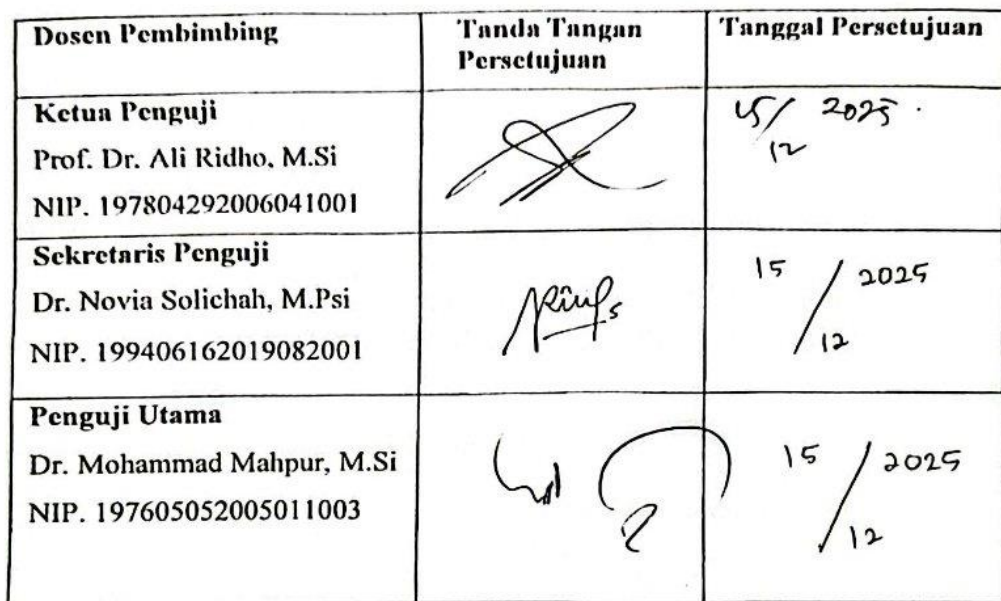 Dosen Pembimbing
Tanda Tangan
Persetujuan
Tanggal Persetujuan
Ketua Penguji
Prof. Dr. Ali Ridho, M.Si
NIP. 197804292006041001
15/ 2025
12
Sekretaris Penguji
Dr. Novia Solichah, M.Psi
NIP. 199406162019082001
15 / 2025
12
Penguji Utama
Dr. Mohammad Mahpur, M.Si
NIP. 197605052005011003
15 / 2025
12